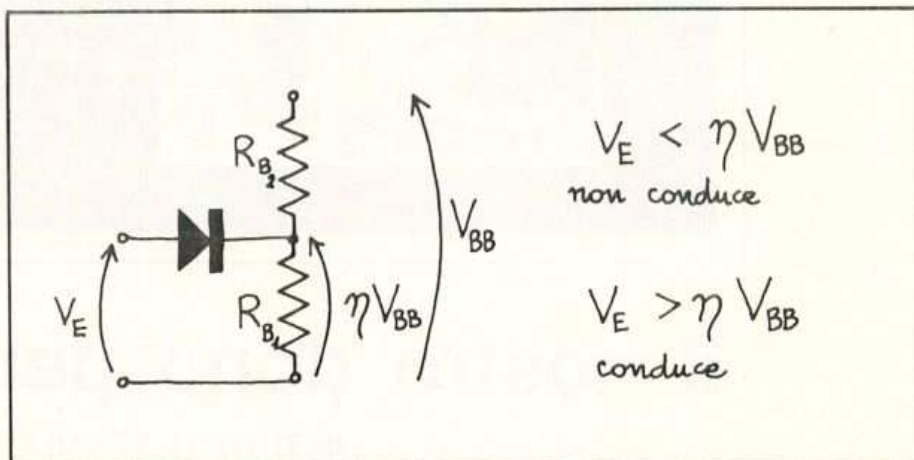 R_B2
V_BB
V_E
R_B1
ηV_BB
V_E < η V_BB
non conduce
V_E > η V_BB
conduce